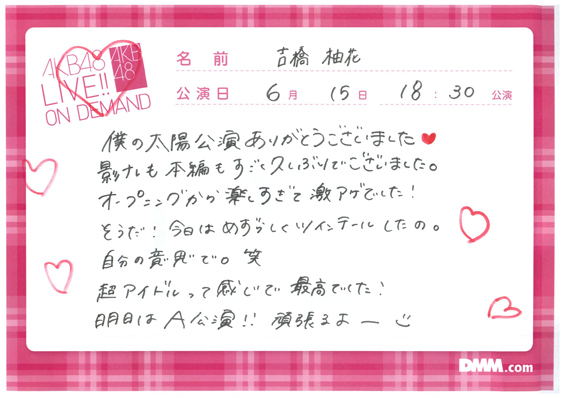 AKB48
LIVE!!
ON DEMAND
AKB
48
名前 吉橋 柚花
公演日 6月 15日 18:30 公演
僕の太陽公演ありがとうございました
影ナレも本編もすごく久しぶりでございました。
オープニングから楽しすぎて激アゲでした!
そうだ!今日はめずらしくツインテールしたの。
自分の意思で。笑
超アイドルって感じで最高でした!
明日はA公演!!頑張るよー
DMM.com